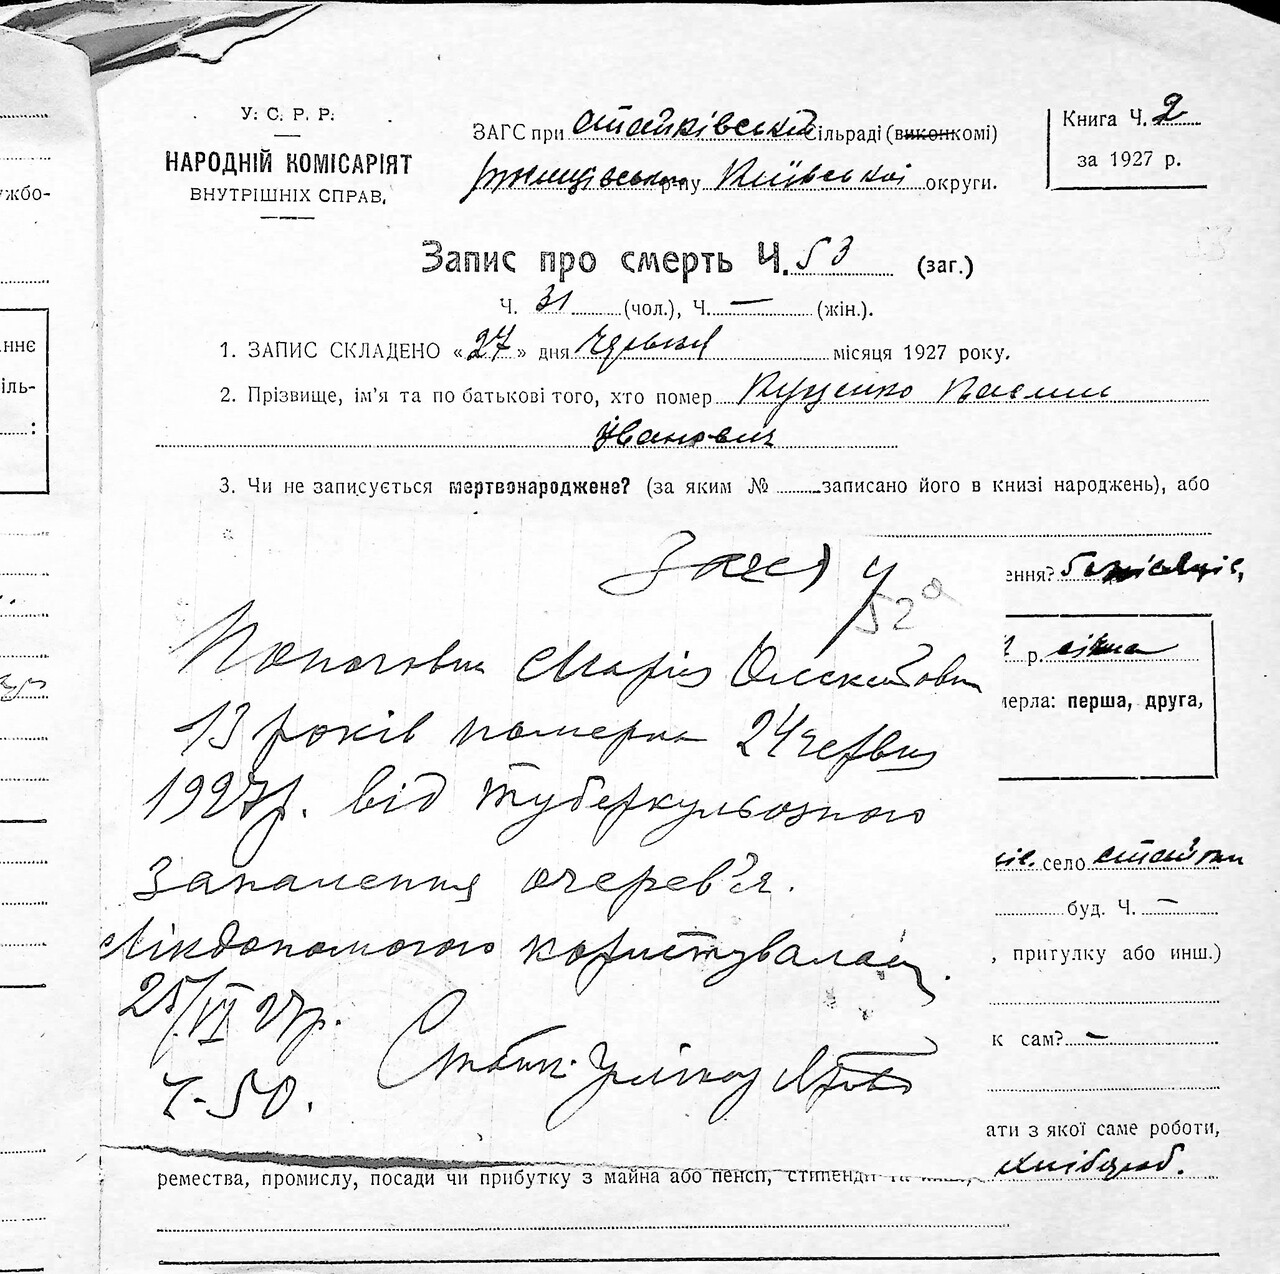 У. С. Р. Р.
НАРОДНІЙ КОМІСАРІЯТ
ВНУТРІШНІХ СПРАВ,
ЗАГС при Стайківській Сільраді (виконкомі)
Ржищівського р-ну Київської округи.
Книга Ч. 2
за 1927 р.
Запис про смерть Ч. 53 (заг.)
Ч. 31 (чол.), Ч. — (жін.).
1. ЗАПИС СКЛАДЕНО «27» дня червня місяця 1927 року.
2. Прізвище, ім'я та по батькові того, хто помер Куценко
Іванович
3. Чи не записується мертвонароджене? (за яким № записано його в книзі народжень), або
52а
Марія Олексіївна
13 років померла 24 червня
1927р. від туберкульозного
запалення очерев'я.
Лікдопомогою користувалась.
25/VI 27р.
ч. 50.
ення?
р. січня
мерла: перша, друга,
село Стайки
буд. Ч. —
, притулку або инш.)
к сам? —
ати з якої саме роботи,
хлібороб.
ремества, промислу, посади чи прибутку з майна або пенсії, стипендії та
ужбо-
анне
іль-
: